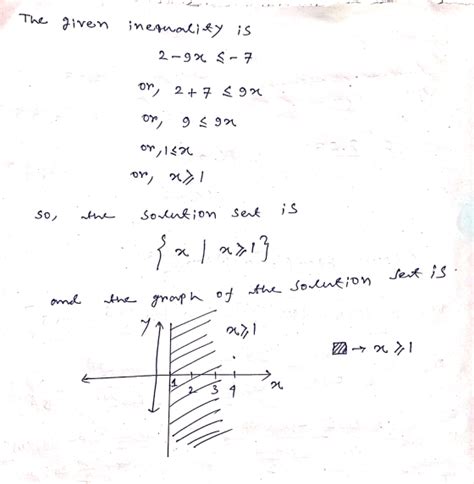 The given inequality is
2-9x ≤ -7
or, 2+7 ≤ 9x
or, 9 ≤ 9x
or, 1≤x
or, x⩾1
so, the solution set is
{x | x⩾1}
and the graph of the solution set is
y x⩾1
→ x⩾1
1 2 3 4 x